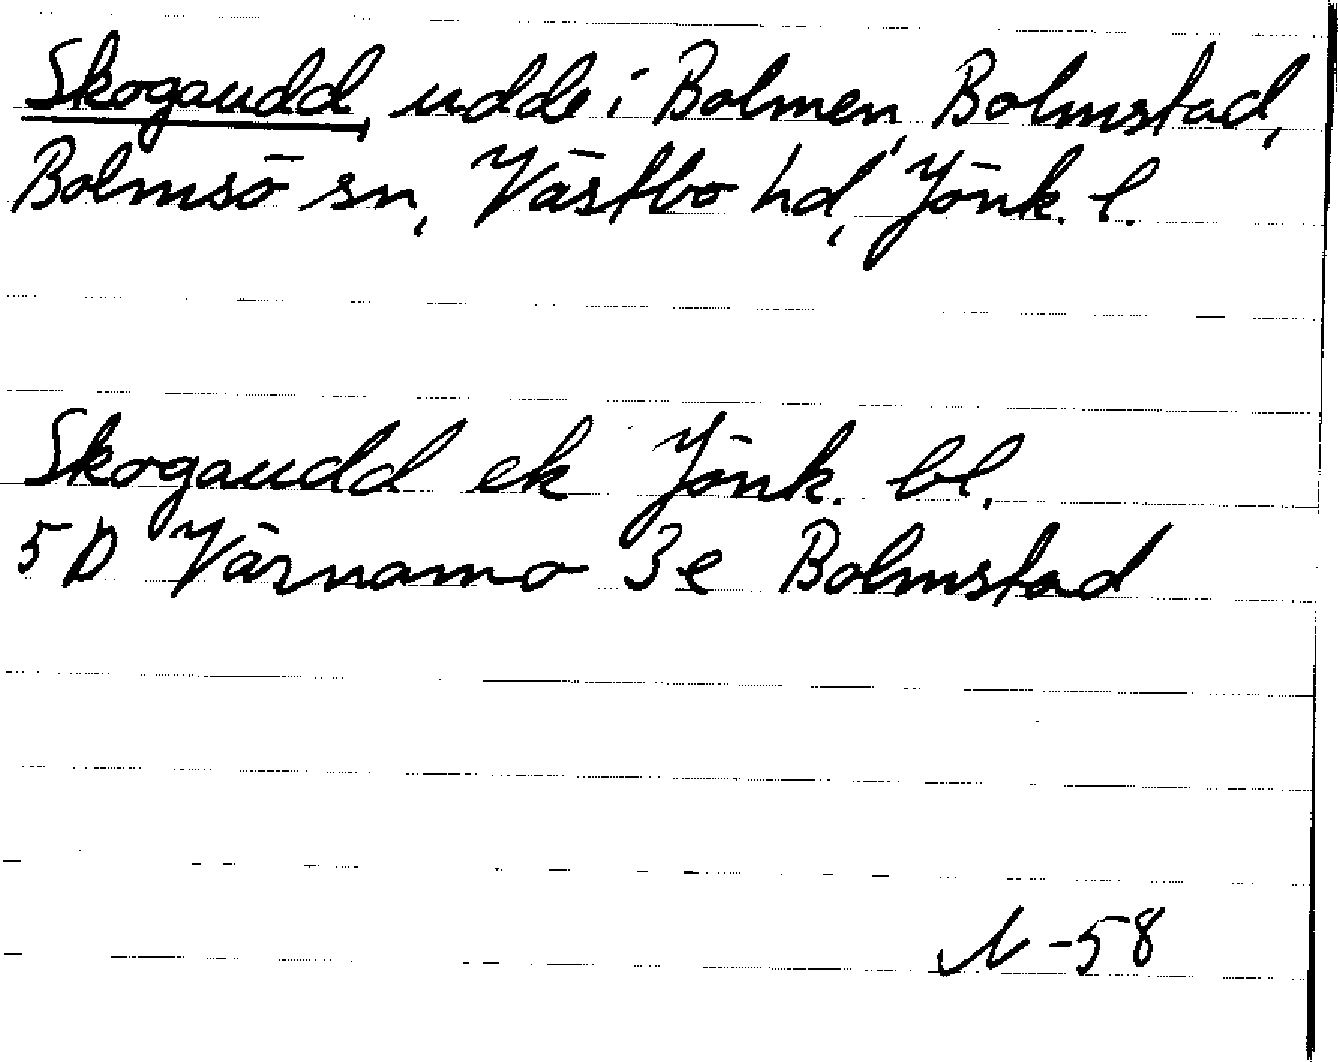 Skogaudd, udde i Bolmen, Bolmstad,
Bolmsö sn, Västbo hd, Jönk. l.
Skogaudd ek Jönk. bl.
5D Värnamo 3e Bolmstad
N-58